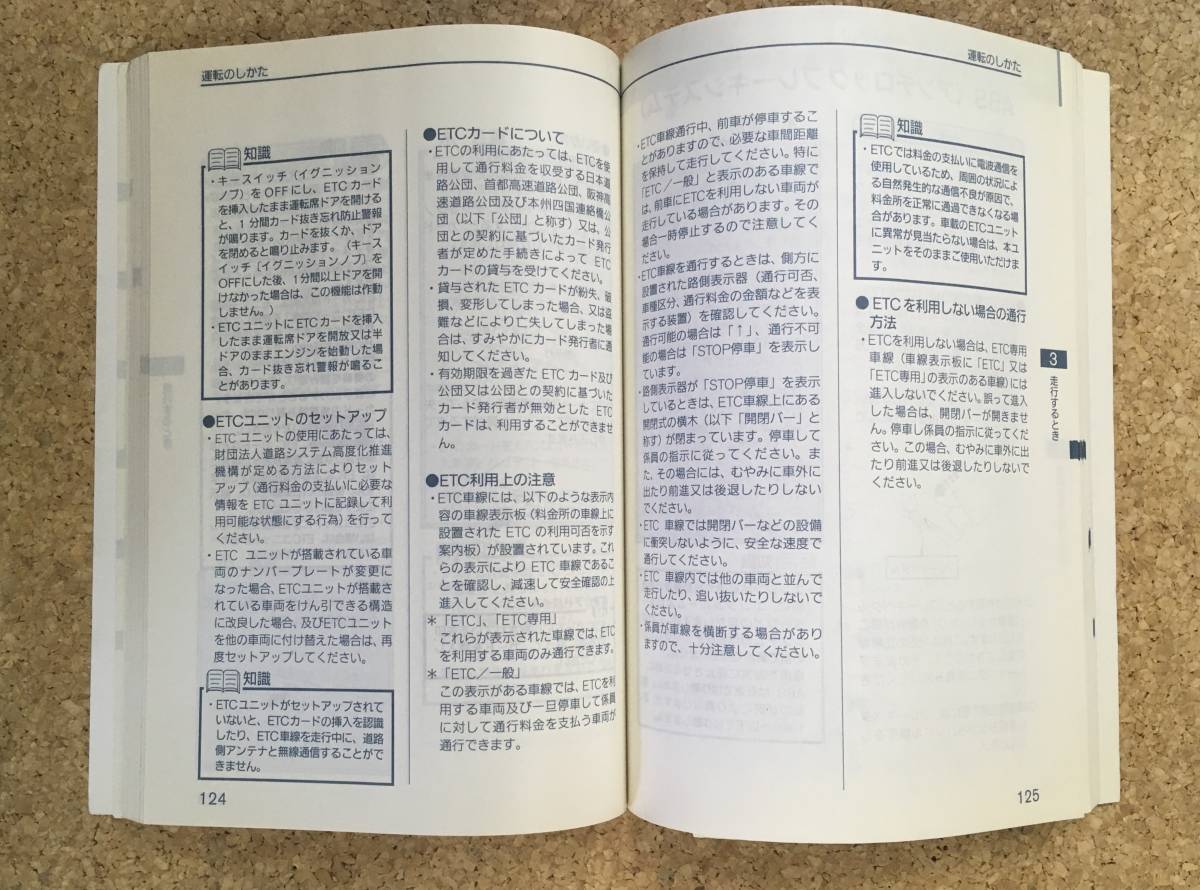 運転のしかた
知識
・キースイッチ(イグニッション
ノブ)をOFFにし、ETCカード
を挿入したまま運転席ドアを開ける
と、1分間カード抜き忘れ防止警報
が鳴ります。カードを抜くか、ドア
を閉めると鳴り止みます。(キース
イッチ〔イグニッションノブ〕を
OFFにした後、1分間以上ドアを開
けなかった場合は、この機能は作動
しません。)
・ETCユニットにETCカードを挿入
したまま運転席ドアを開放又は半
ドアのままエンジンを始動した場
合、カード抜き忘れ警報が鳴るこ
とがあります。
●ETCユニットのセットアップ
・ETCユニットの使用にあたっては、
財団法人道路システム高度化推進
機構が定める方法によりセット
アップ(通行料金の支払いに必要な
情報を ETC ユニットに記録して利
用可能な状態にする行為)を行って
ください。
・ETC ユニットが搭載されている車
両のナンバープレートが変更に
なった場合、ETCユニットが搭載さ
れている車両をけん引できる構造
に改良した場合、及びETCユニット
を他の車両に付け替えた場合は、再
度セットアップしてください。
知識
・ETCユニットがセットアップされて
いないと、ETCカードの挿入を認識
したり、ETC車線を走行中に、道路
側アンテナと無線通信することがで
きません。
124
●ETCカードについて
・ETCの利用にあたっては、ETCを使
用して通行料金を収受する日本道
路公団、首都高速道路公団、阪神高
速道路公団及び本州四国連絡橋公
団(以下「公団」と称す)又は、公
団との契約に基づいたカード発行
者が定めた手続きによって ETC
カードの貸与を受けてください。
・貸与された ETC カードが紛失、破
損、変形してしまった場合、又は盗
難などにより亡失してしまった場
合は、すみやかにカード発行者に通
知してください。
・有効期限を過ぎた ETC カード及び
公団又は公団との契約に基づいた
カード発行者が無効とした ETC
カードは、利用することができませ
ん。
●ETC利用上の注意
・ETC車線には、以下のような表示内
容の車線表示板(料金所の車線上に
設置された ETC の利用可否を示す
案内板)が設置されています。これ
らの表示により ETC 車線であるこ
とを確認し、減速して安全確認の上
進入してください。
＊「ETC」、「ETC専用」
これらが表示された車線では、ETC
を利用する車両のみ通行できます。
＊「ETC／一般」
この表示がある車線では、ETCを利
用する車両及び一旦停車して係員
に対して通行料金を支払う車両が
通行できます。
運転のしかた
・ETC車線通行中、前車が停車するこ
とがありますので、必要な車間距離
を保持して走行してください。特に
「ETC／一般」と表示のある車線で
は、前車にETCを利用しない車両が
走行している場合があります。その
場合一時停止するので注意してく
ださい。
・ETC車線を通行するときは、側方に
設置された路側表示器(通行可否、
車種区分、通行料金の金額などを表
示する装置)を確認してください。
通行可能の場合は「↑」、通行不可
能の場合は「STOP停車」を表示し
ています。
・路側表示器が「STOP停車」を表示
しているときは、ETC車線上にある
開閉式の横木(以下「開閉バー」と
称す)が閉まっています。停車して
係員の指示に従ってください。ま
た、その場合には、むやみに車外に
出たり前進又は後退したりしない
でください。
・ETC 車線では開閉バーなどの設備
に衝突しないように、安全な速度で
通行してください。
・ETC 車線内では他の車両と並んで
走行したり、追い抜いたりしないで
ください。
・係員が車線を横断する場合があり
ますので、十分注意してください。
知識
・ETCでは料金の支払いに電波通信を
使用しているため、周囲の状況によ
る自然発生的な通信不良が原因で、
料金所を正常に通過できなくなる場
合があります。車載のETCユニット
に異常が見当たらない場合は、本ユ
ニットをそのままご使用いただけま
す。
● ETC を利用しない場合の通行
方法
・ETCを利用しない場合は、ETC専用
車線(車線表示板に「ETC」又は
「ETC専用」の表示のある車線)には
進入しないでください。誤って進入
した場合は、開閉バーが開きませ
ん。停車し係員の指示に従ってくだ
さい。この場合、むやみに車外に出
たり前進又は後退したりしないで
ください。
3
走行するとき
125